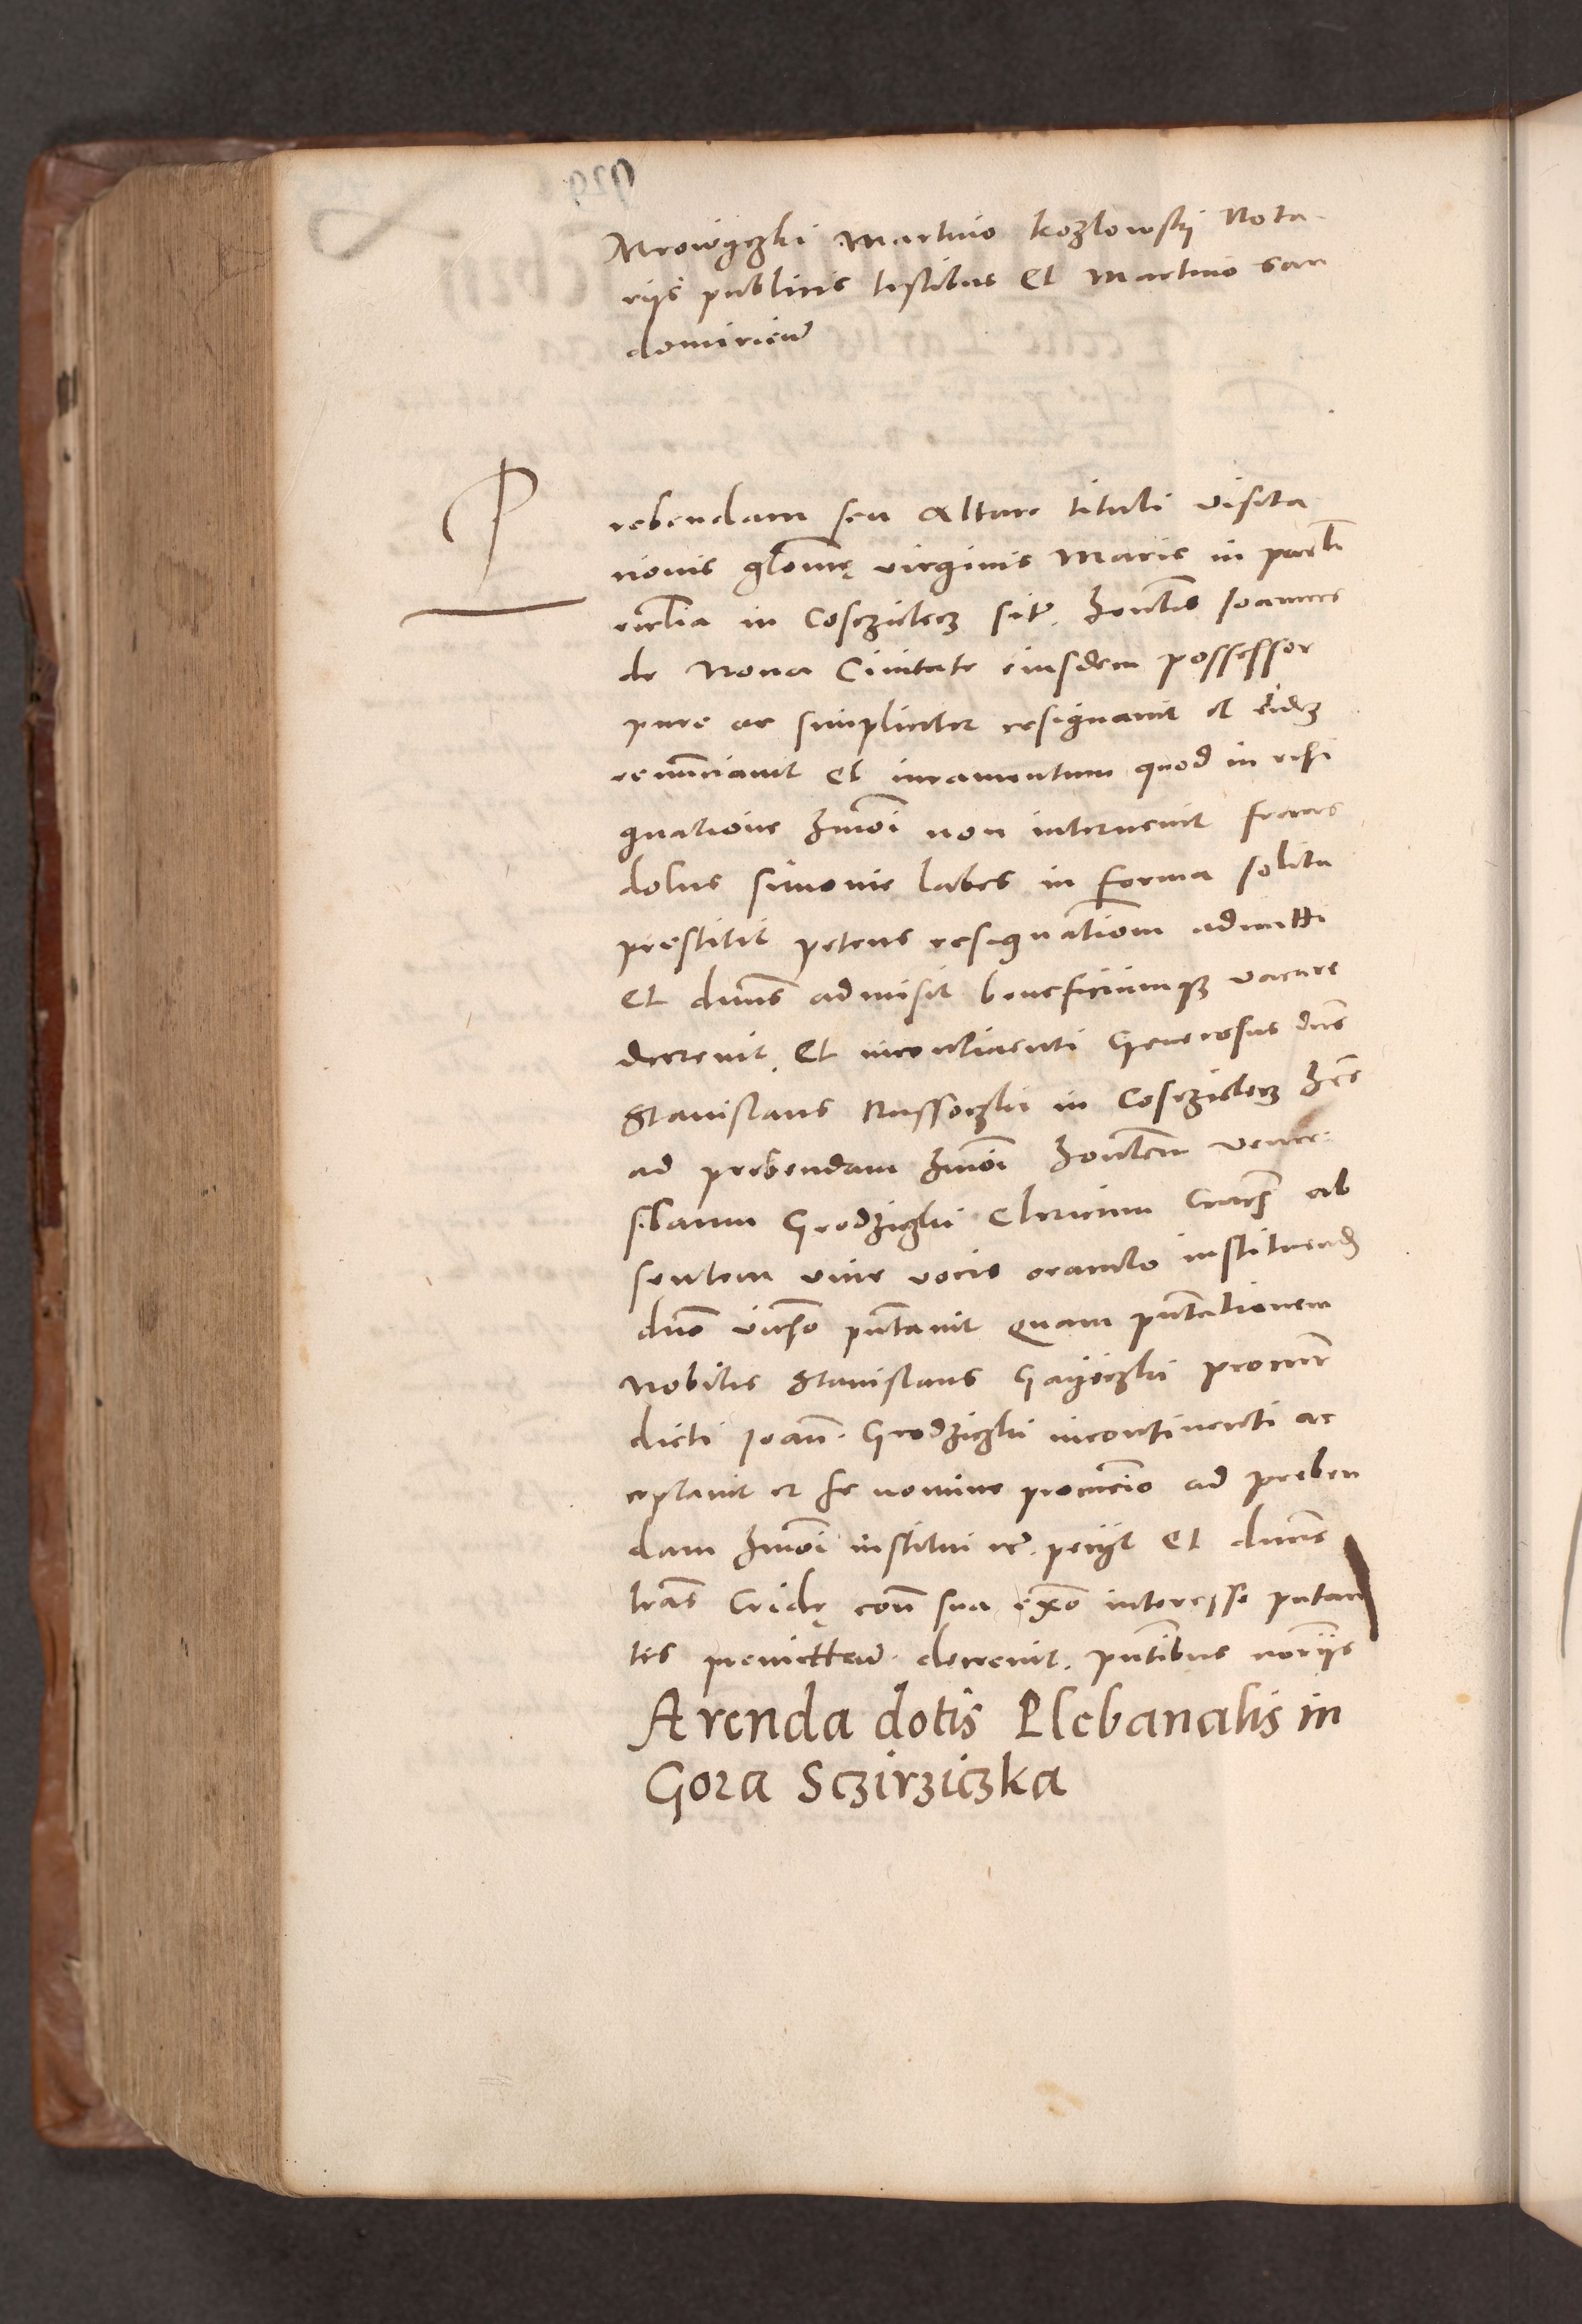 Mrowyczki Martino Kozlowskÿ Nota
rÿs publicis testibus Et Martino San
domirien̄
Prebendam seu Altare tituli visita
tionis glōsę virginis Marie in parrli
ecclīa in Cosczielecz sit̄. hon̄blis Ioannes
de Nova Civitate eiusdem possessor
pure ac simpliciter resignavit et eidem
renunciavit Et iuramentum quod in resi
gnatione hmōi non intervenit fraus
dolus simonie labes in forma solita
prestitit petens resignatiōem admitti
Et dn̄us admisit beneficiumqȝ vacare
decrevit. Et incontinenti Generosus dn̄s
Stanislaus Russoczki in Cosczielecz hrs̄
ad prebendam hmōi hon̄blem
Grodziczki Clericum Crac̄ ab
sentem vive vocis oraculo instituend̄
dn̄o pn̄tavit Quam pn̄tationem
Nobilis Stanislaus Gayeczki procur̄
dicti Ioan̄. Grodziczki incontinenti ac
ceptavit et se nomine procurio ad preben
dam hmōi institui etc̄. petÿt Et dn̄us
lrās Cridę con̄ sua interesse putan
tes premitten̄. decrevit. pn̄tibus norÿs
Arenda dotis Plebanalis in
Gora Sczirziczka